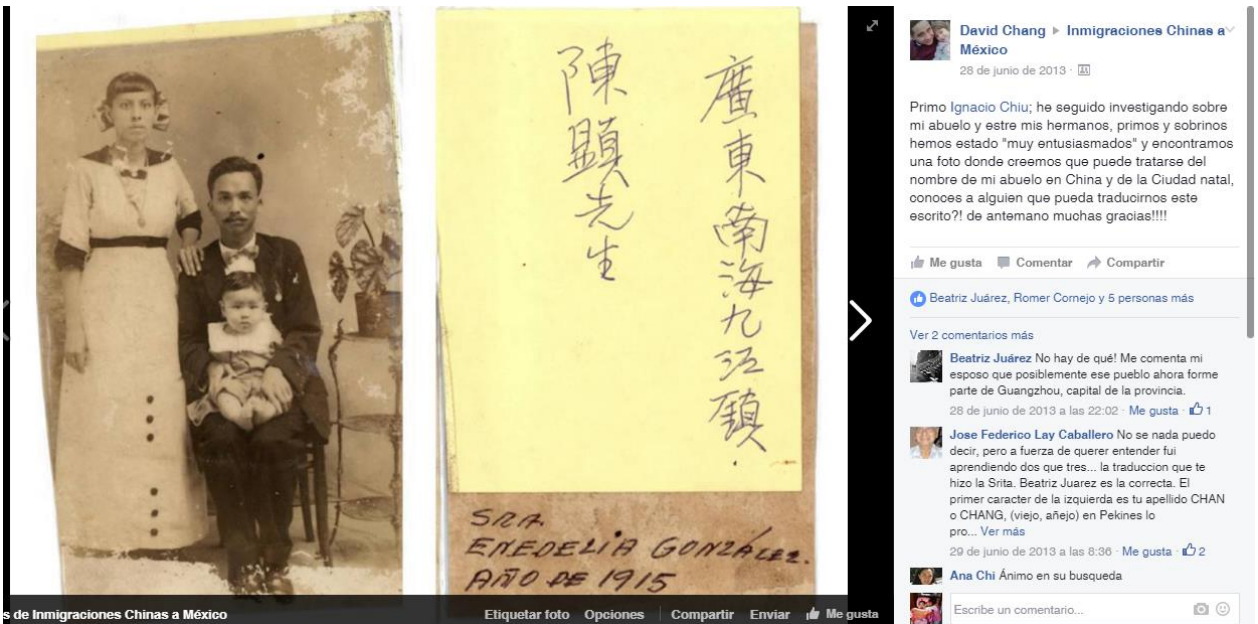 廣東南海九江鎮.
陳顕先生
SRA.
ENEDELIA GONZÁLEZ.
AÑO DE 1915
s de Inmigraciones Chinas a México
Etiquetar foto Opciones Compartir Enviar Me gusta
David Chang ▸ Inmigraciones Chinas a
México
28 de junio de 2013 ·
Primo Ignacio Chiu; he seguido investigando sobre
mi abuelo y estre mis hermanos, primos y sobrinos
hemos estado "muy entusiasmados" y encontramos
una foto donde creemos que puede tratarse del
nombre de mi abuelo en China y de la Ciudad natal,
conoces a alguien que pueda traducirnos este
escrito?! de antemano muchas gracias!!!!
Me gusta Comentar Compartir
Beatriz Juárez, Romer Cornejo y 5 personas más
Ver 2 comentarios más
Beatriz Juárez No hay de qué! Me comenta mi
esposo que posiblemente ese pueblo ahora forme
parte de Guangzhou, capital de la provincia.
28 de junio de 2013 a las 22:02 · Me gusta · 1
Jose Federico Lay Caballero No se nada puedo
decir, pero a fuerza de querer entender fui
aprendiendo dos que tres... la traduccion que te
hizo la Srita. Beatriz Juarez es la correcta. El
primer caracter de la izquierda es tu apellido CHAN
O CHANG, (viejo, añejo) en Pekines lo
pro... Ver más
29 de junio de 2013 a las 8:36 · Me gusta · 2
Ana Chi Ánimo en su busqueda
Escribe un comentario...